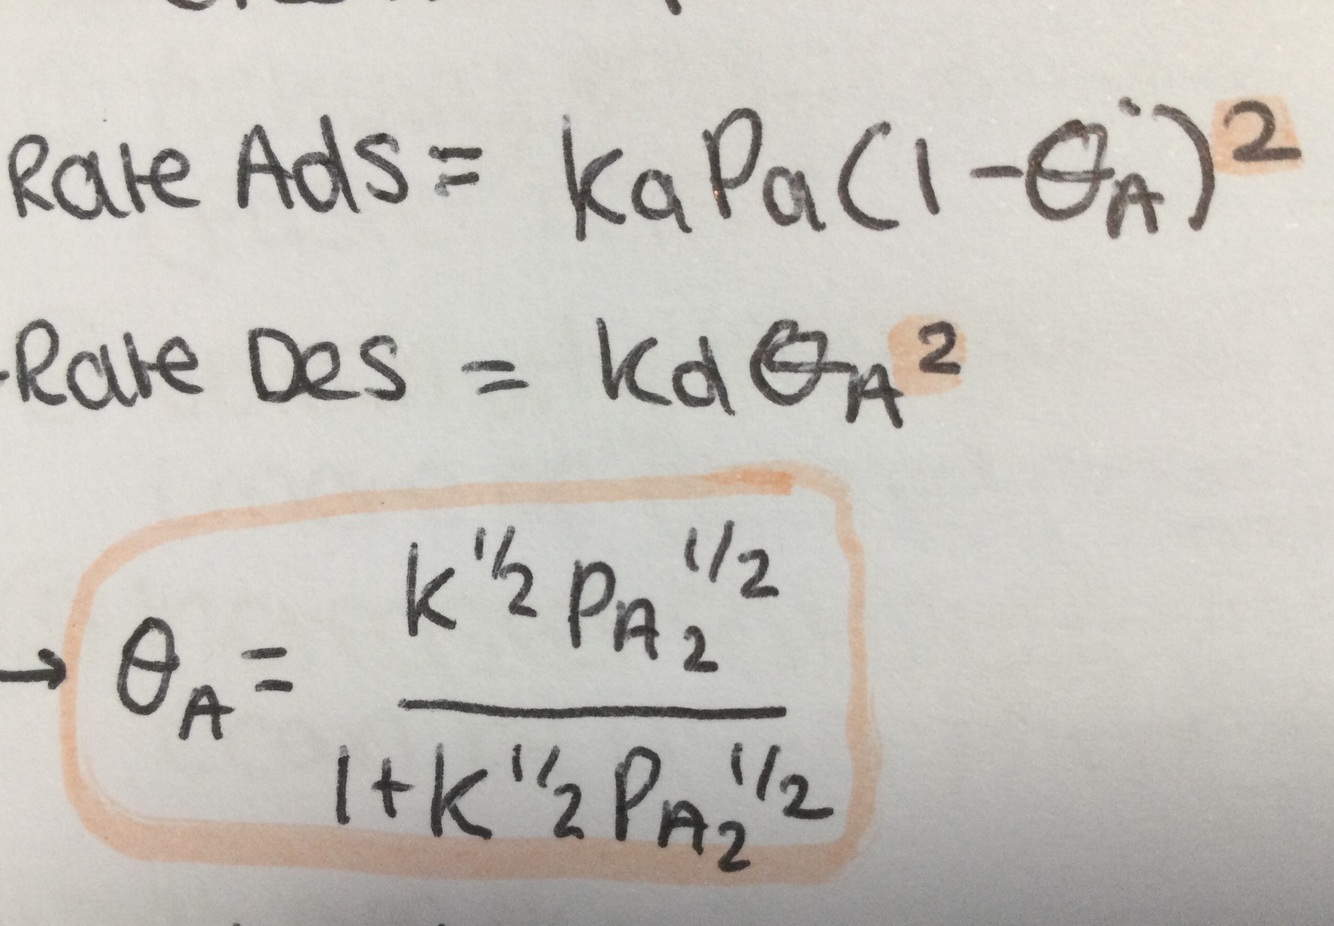 Rate Ads = KaPa(1-θA)²
Rate Des = KdθA²
→ θA = K^1/2 PA2^1/2
1+K^1/2 PA2^1/2